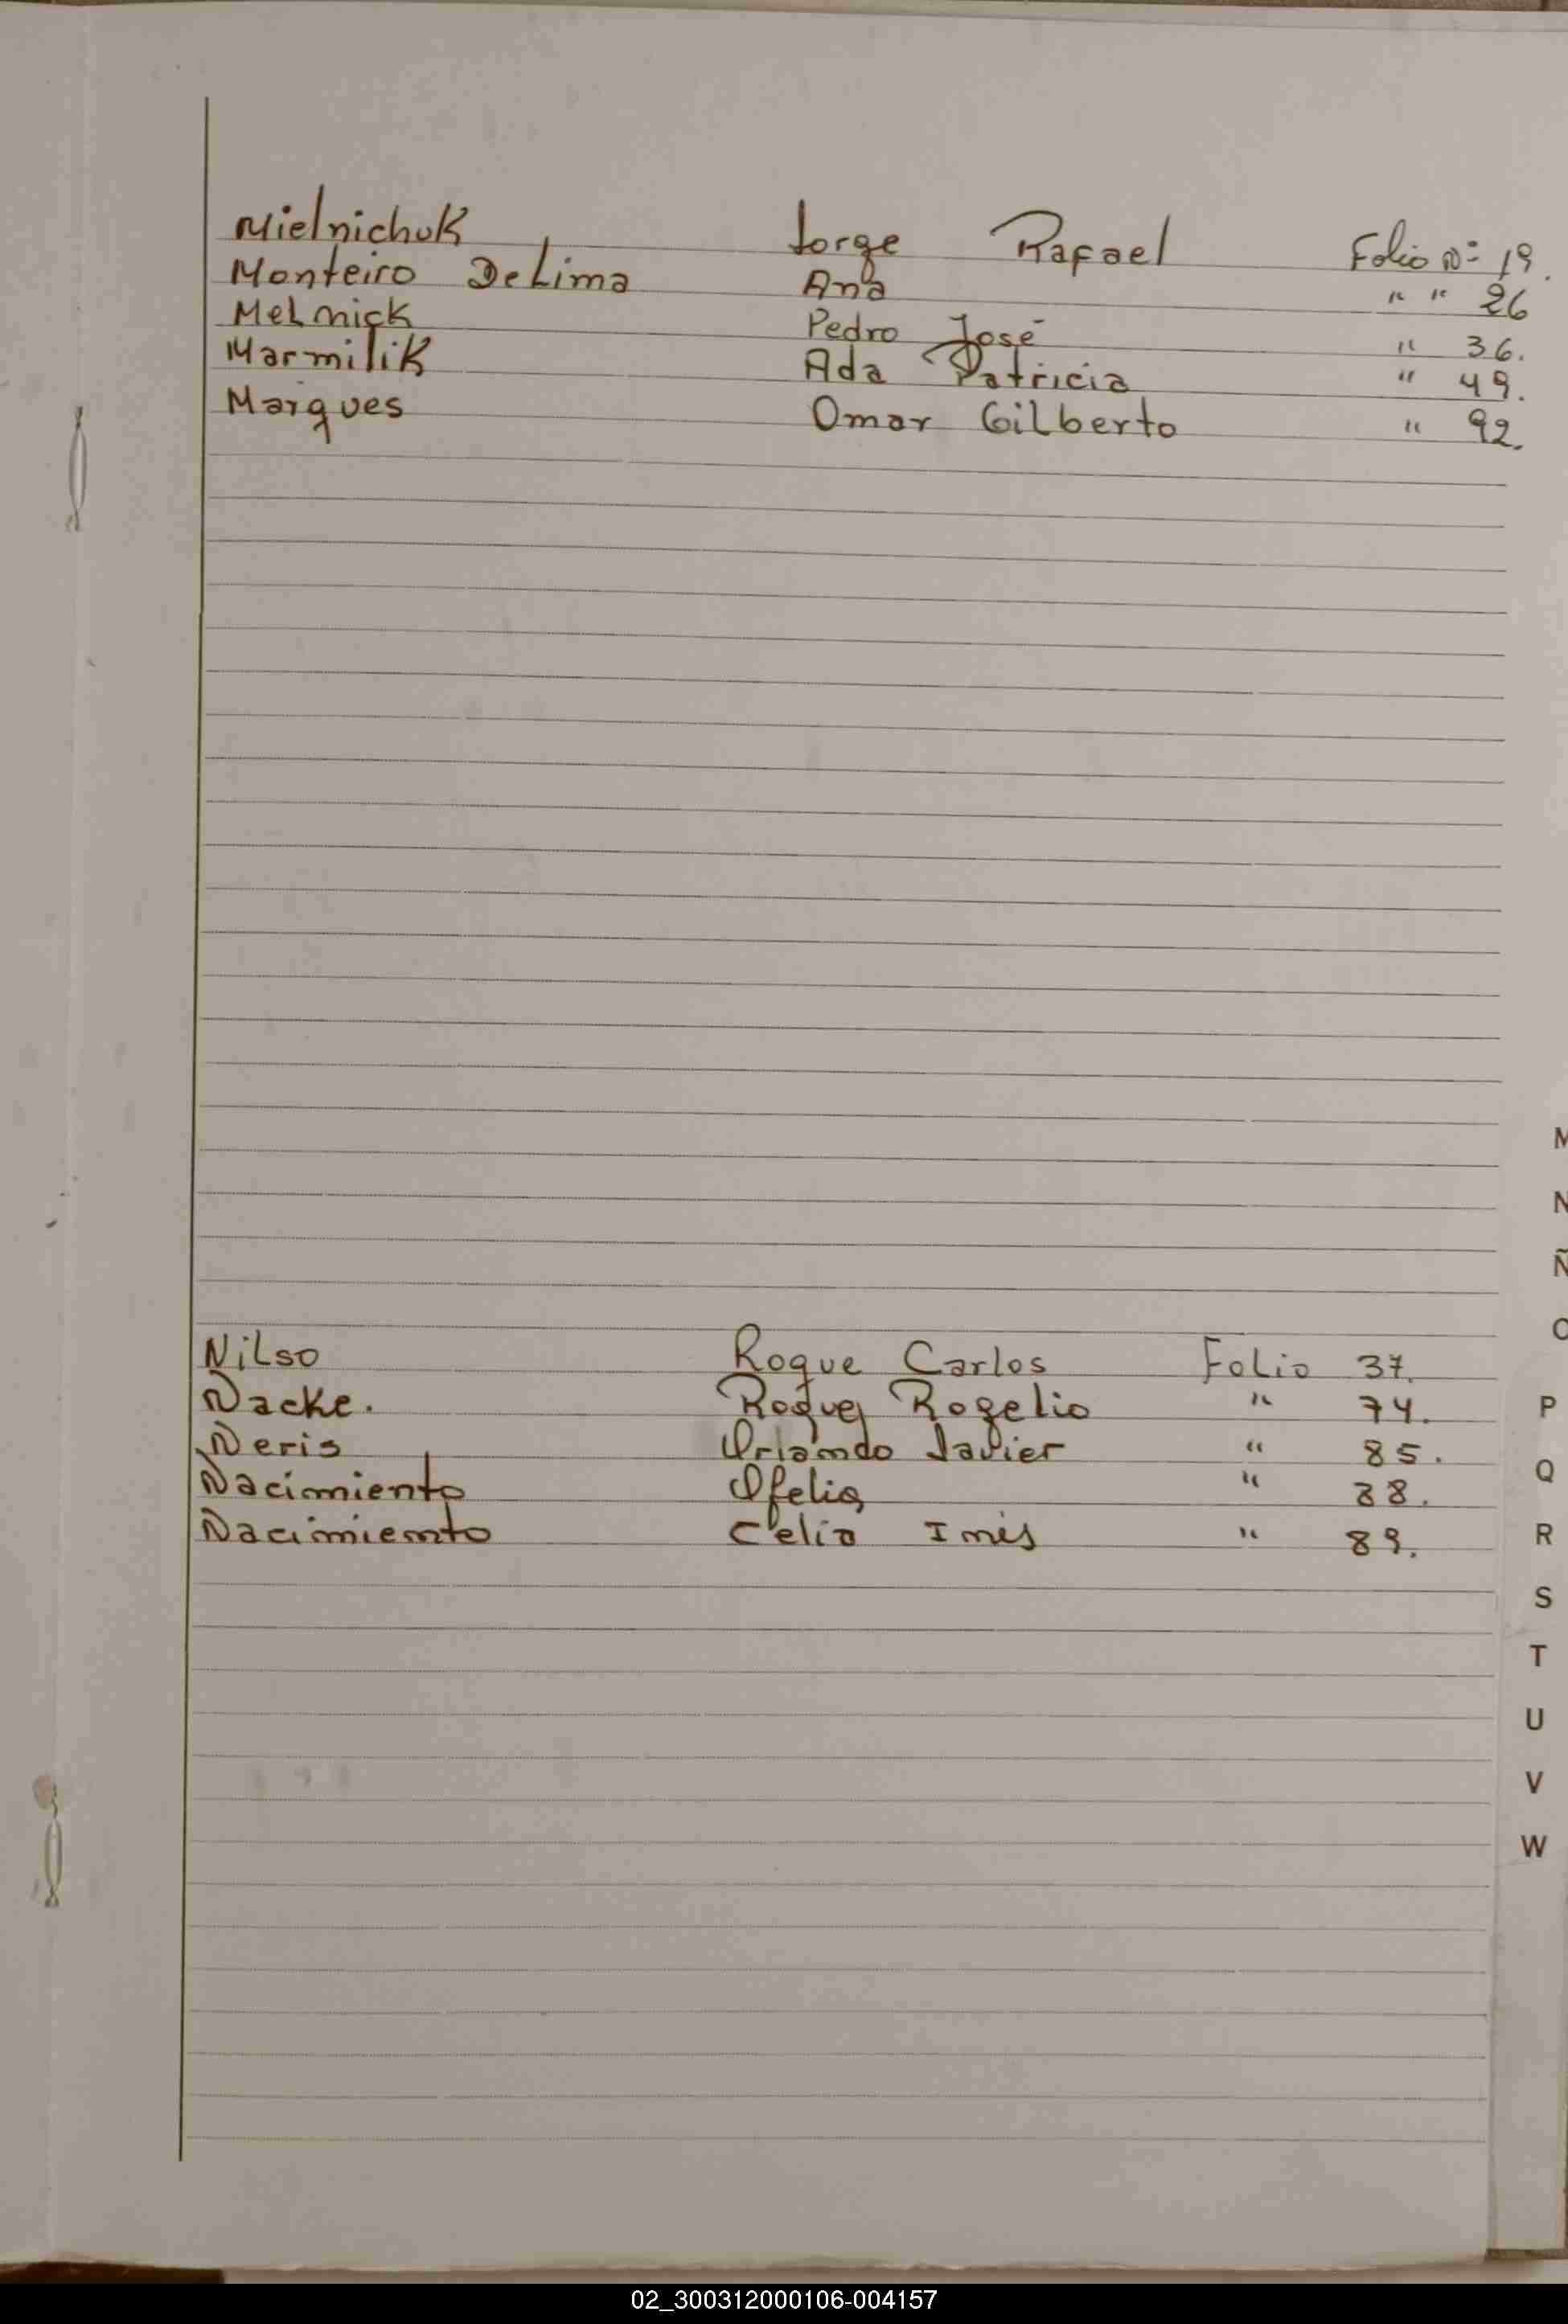 Mielnichuk Jorge Rafael Folio Nº 19.
Monteiro De Lima Ana " " 26
Melnick Pedro José " 36.
Marmilik Ada Patricia " 49.
Marques Omar Gilberto " 92.
M
N
Ñ
O
Nilso Roque Carlos Folio 37.
Nacke. Roque Rogelio " 74.
P
Neris Orlando Javier " 85.
Q
Nacimiento Ofelia " 88.
Nacimiento Celia Inés " 89.
R
S
T
U
V
W
02_300312000106-004157